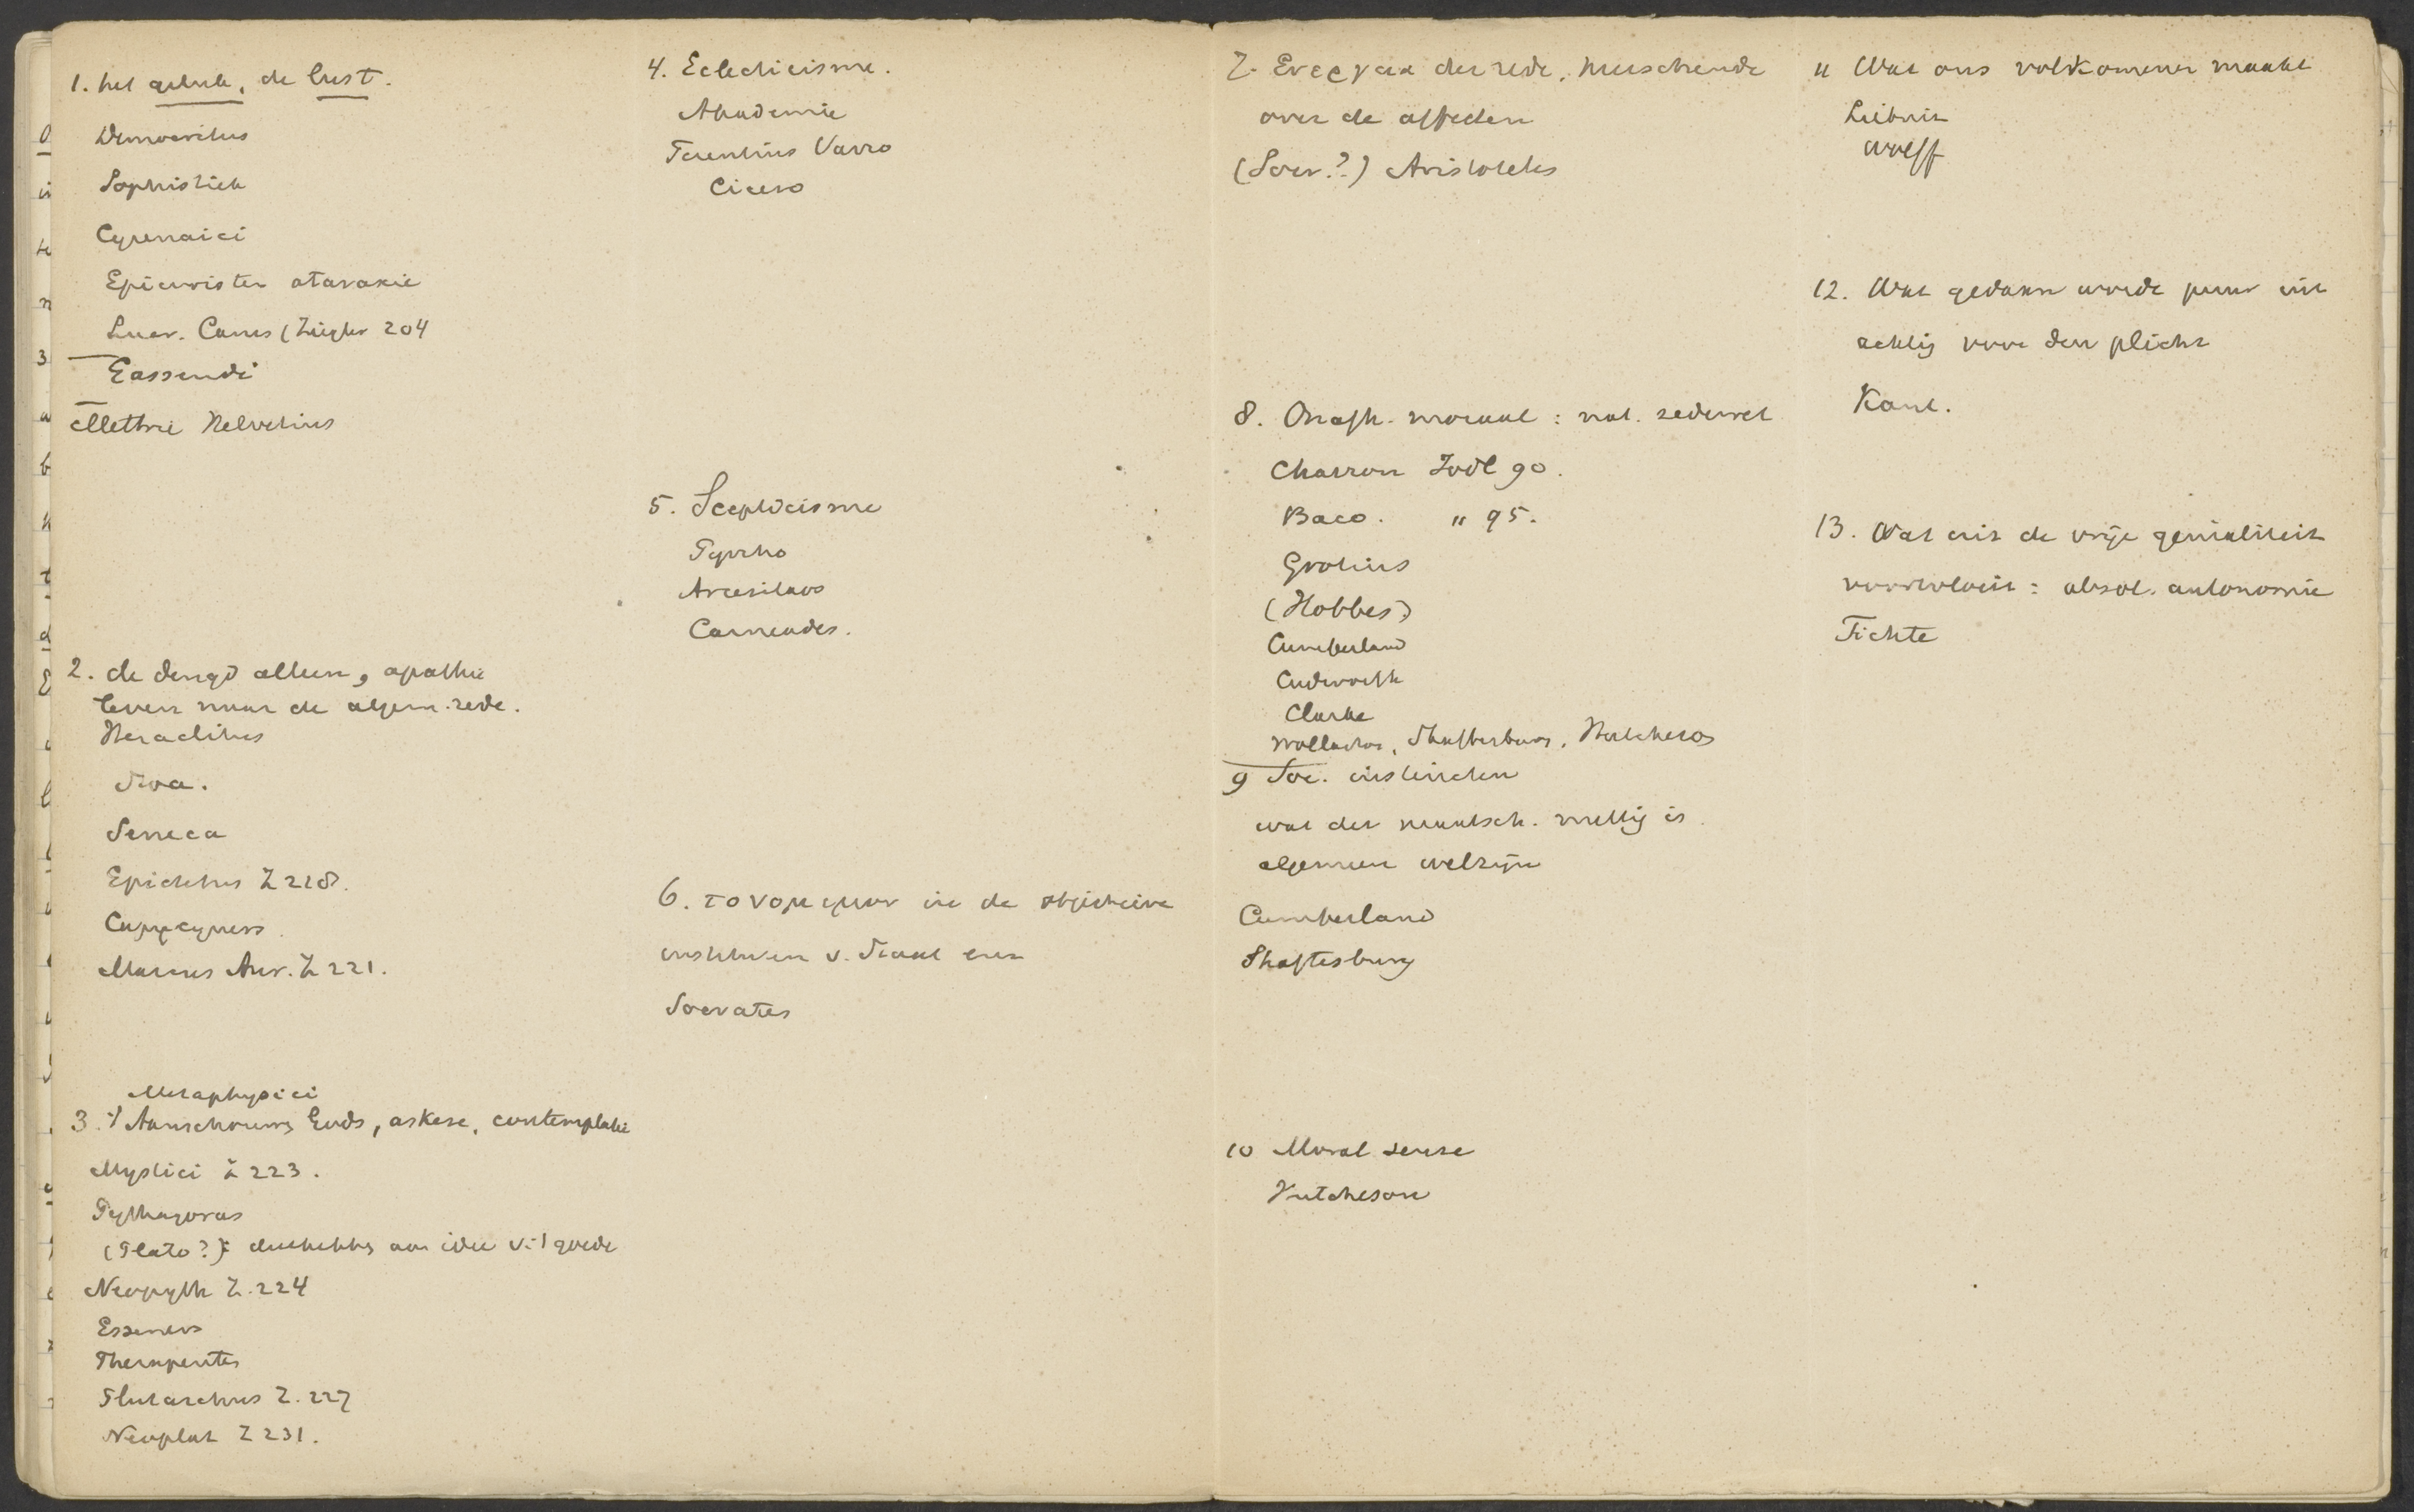 1. het geluk, de lust.
Democritus
Sophistiek
Cyrenaici
Epicuristen ataraxie
Lucr. Carus (Ziegler 204
Gassendi
Mettrie Helvetius
2. de deugd alleen, apathie
leven naar de algem. rede.
Heraclitus
Stoa.
Seneca
Epictetus Z 218.
Marcus Aur. Z 221.
Metaphysici
3. Aanschouwing Gods, askese, contemplatie
Mystici Z 223.
Pythagoras
(Plato?): aan idee v. 't goede
Neopyth Z. 224
Esseners
Therapeuten
Plutarchus Z. 227
Neoplat Z 231.
4. Eclecticisme.
Akademie
Terentius Varro
Cicero
5. Scepticisme
Pyrrho
Arcesilaos
Carneades.
6. το νομιμον in de objectieve
instituten v. Staat enz
Socrates
7. Ενεργεια der rede, heerschende
over de affecten
(Socr.?) Aristoteles
8. Onafh. moraal: nat. zedewet
Charron Jodl 90.
Baco. " 95.
Grotius
(Hobbes)
Cumberland
Cudworth
Clarke
Wollaston, Shaftesbury, Hutcheson
9 Soc. instincten
wat der maatsch. nuttig is.
algemeen welzijn
Cumberland
Shaftesbury
10 Moral sense
Hutcheson
11 Wat ons volkomener maakt
Leibniz
Wolff
12. Wat gedaan wordt puur uit
achting voor den plicht
Kant.
13. Wat uit de vrije genialiteit
voortvloeit: absol. autonomie
Fichte